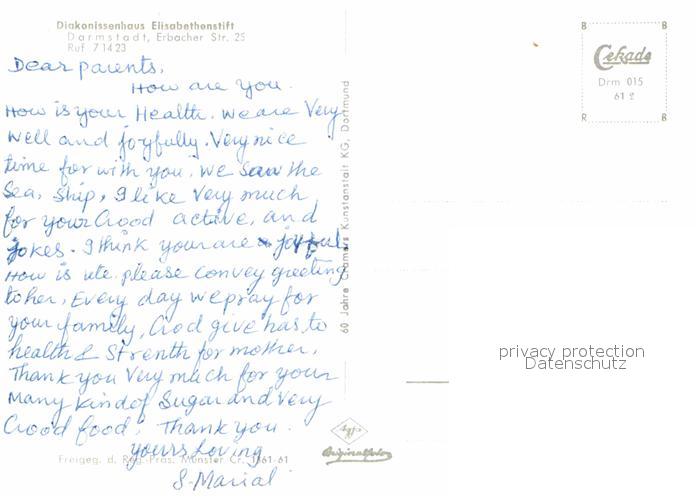 Diakonissenhaus Elisabethenstift
Darmstadt, Erbacher Str. 25
Ruf 71423
Dear parents,
How are you.
How is your Health. We are Very
Well and joyfully. Very nice
time for with you. We saw the
Sea, Ship, I like Very much
for your Good active, and
jokes. I think your are joyful.
How is ute. please convey greeting
to her, Every day we pray for
your family, God give has to
health & Strenth for mother,
Thank you Very much for your
Many kind of Sugar and Very
Good food, Thank you.
yours Loving
S. Marial
Freigeg. d. Reg.-Präs. Münster Cr. 1861-61
60 Jahre Cramers Kunstanstalt KG, Dortmund
B B
Cekade
Drm 015
61 2
R B
privacy protection
Datenschutz
Agfa
Originalfoto